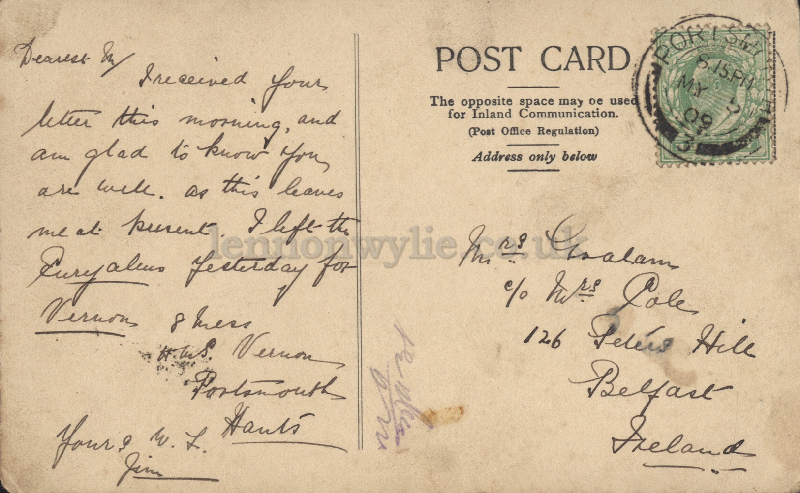 Dearest M
I received your
letter this morning, and
am glad to know you
are well. as this leaves
me at present. I left the
Euryalus yesterday for
Vernon
8 Mess
H.M.S. Vernon
Portsmouth
Hants
Yours W. L.
Jim
POST CARD
The opposite space may be used
for Inland Communication.
(Post Office Regulation)
Address only below
PORTSMOUTH
6.15 PM
MY 5
09
3
Mrs Graham
c/o Mrs Cole
126 Peters Hill
Belfast
Ireland
lennonwylie.co.uk